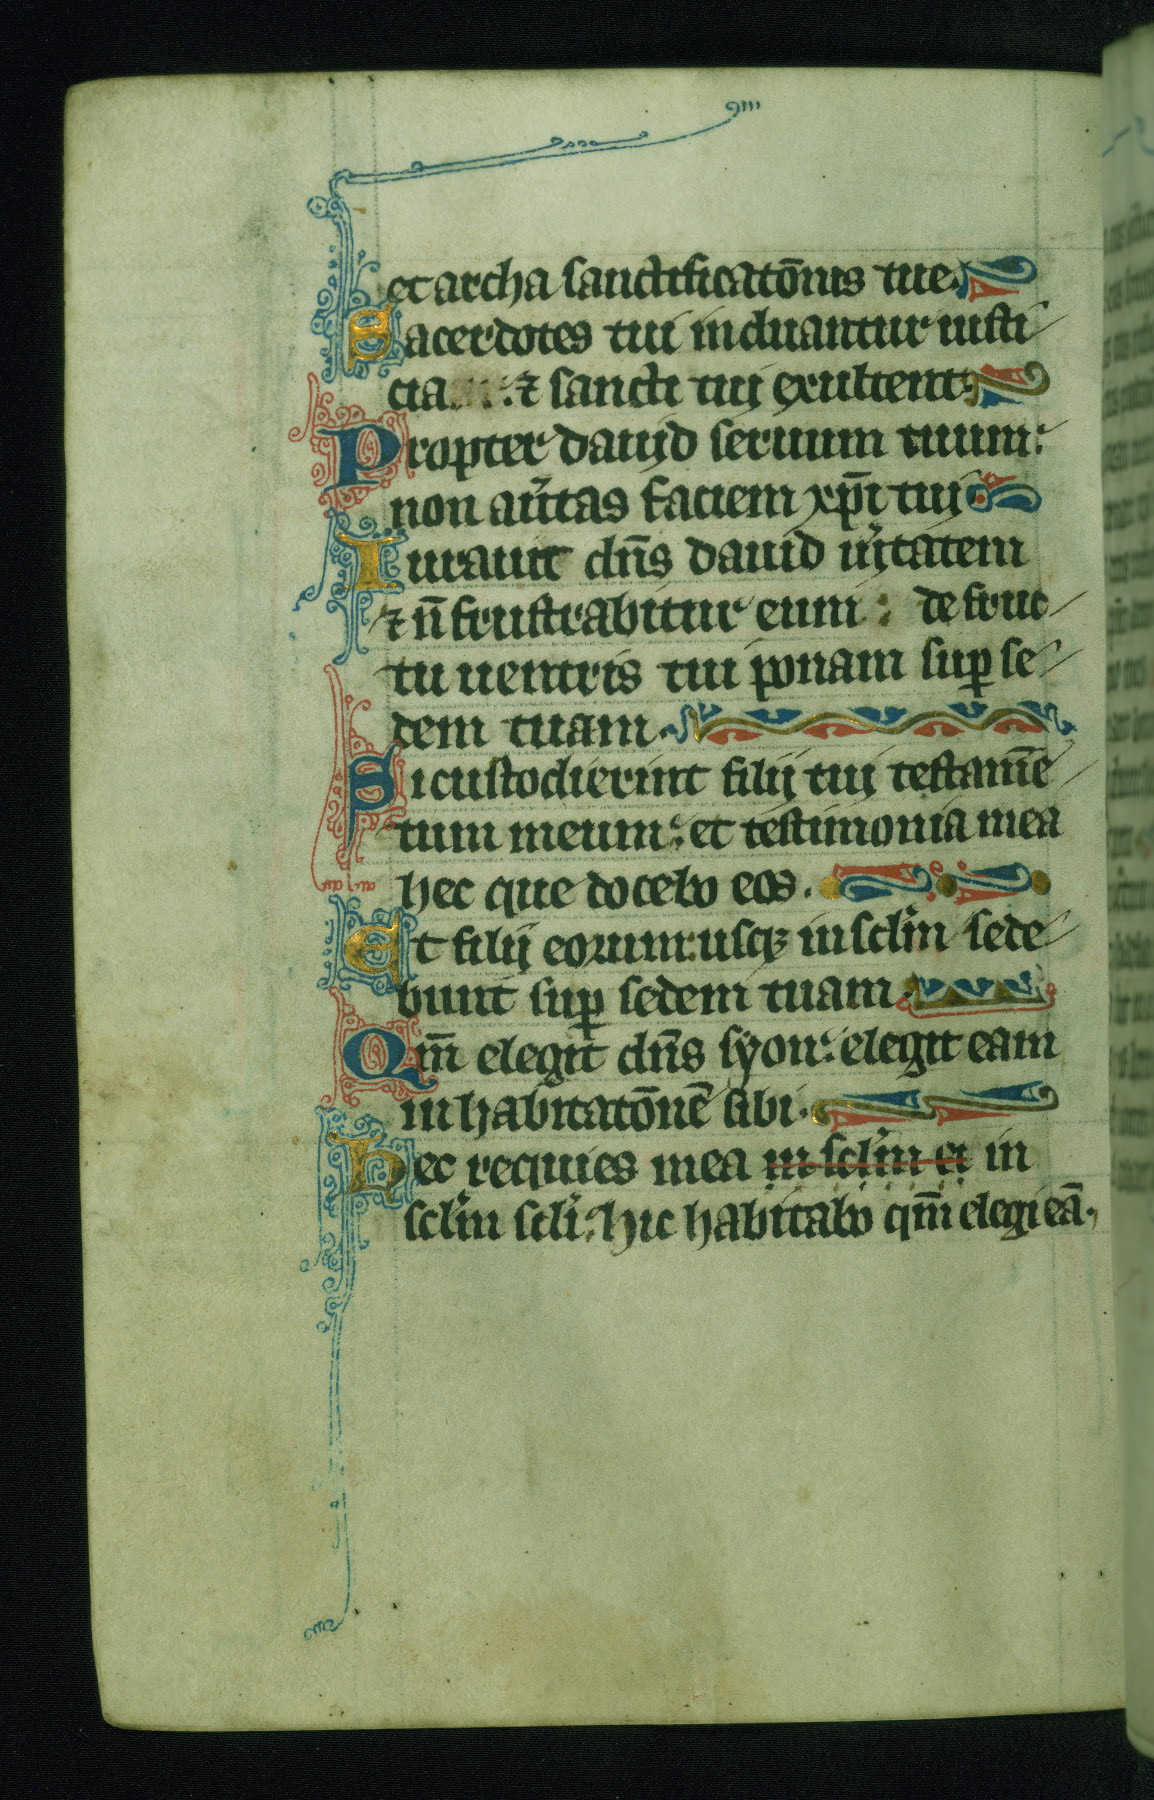 et archa sanctificatōnis tue.
Sacerdotes tui induantur iusti
cia : ⁊ sancti tuij exultent:
Propter dauid seruum tuum:
non au͛tas faciem xp̄i tuij
Iurauit dn̄s dauid u͛itatem
⁊ n̄ frustrabitur eum : de fruc
tu uentris tui ponam suꝑ se
dem tuam.
Si custodierint filij tuij testamē
tum meum: et testimonia mea
hec que docebo eos.
Et filij eorum: usqꝫ in scl͛m sede
bunt suꝑ sedem tuam.
Qm̄ elegit dn̄s syon: elegit eam
in habitatōnē sibi.
Hec requies mea in scl͛m et in
scl͛m scli͛: hic habitabo qm̄ elegi eā.